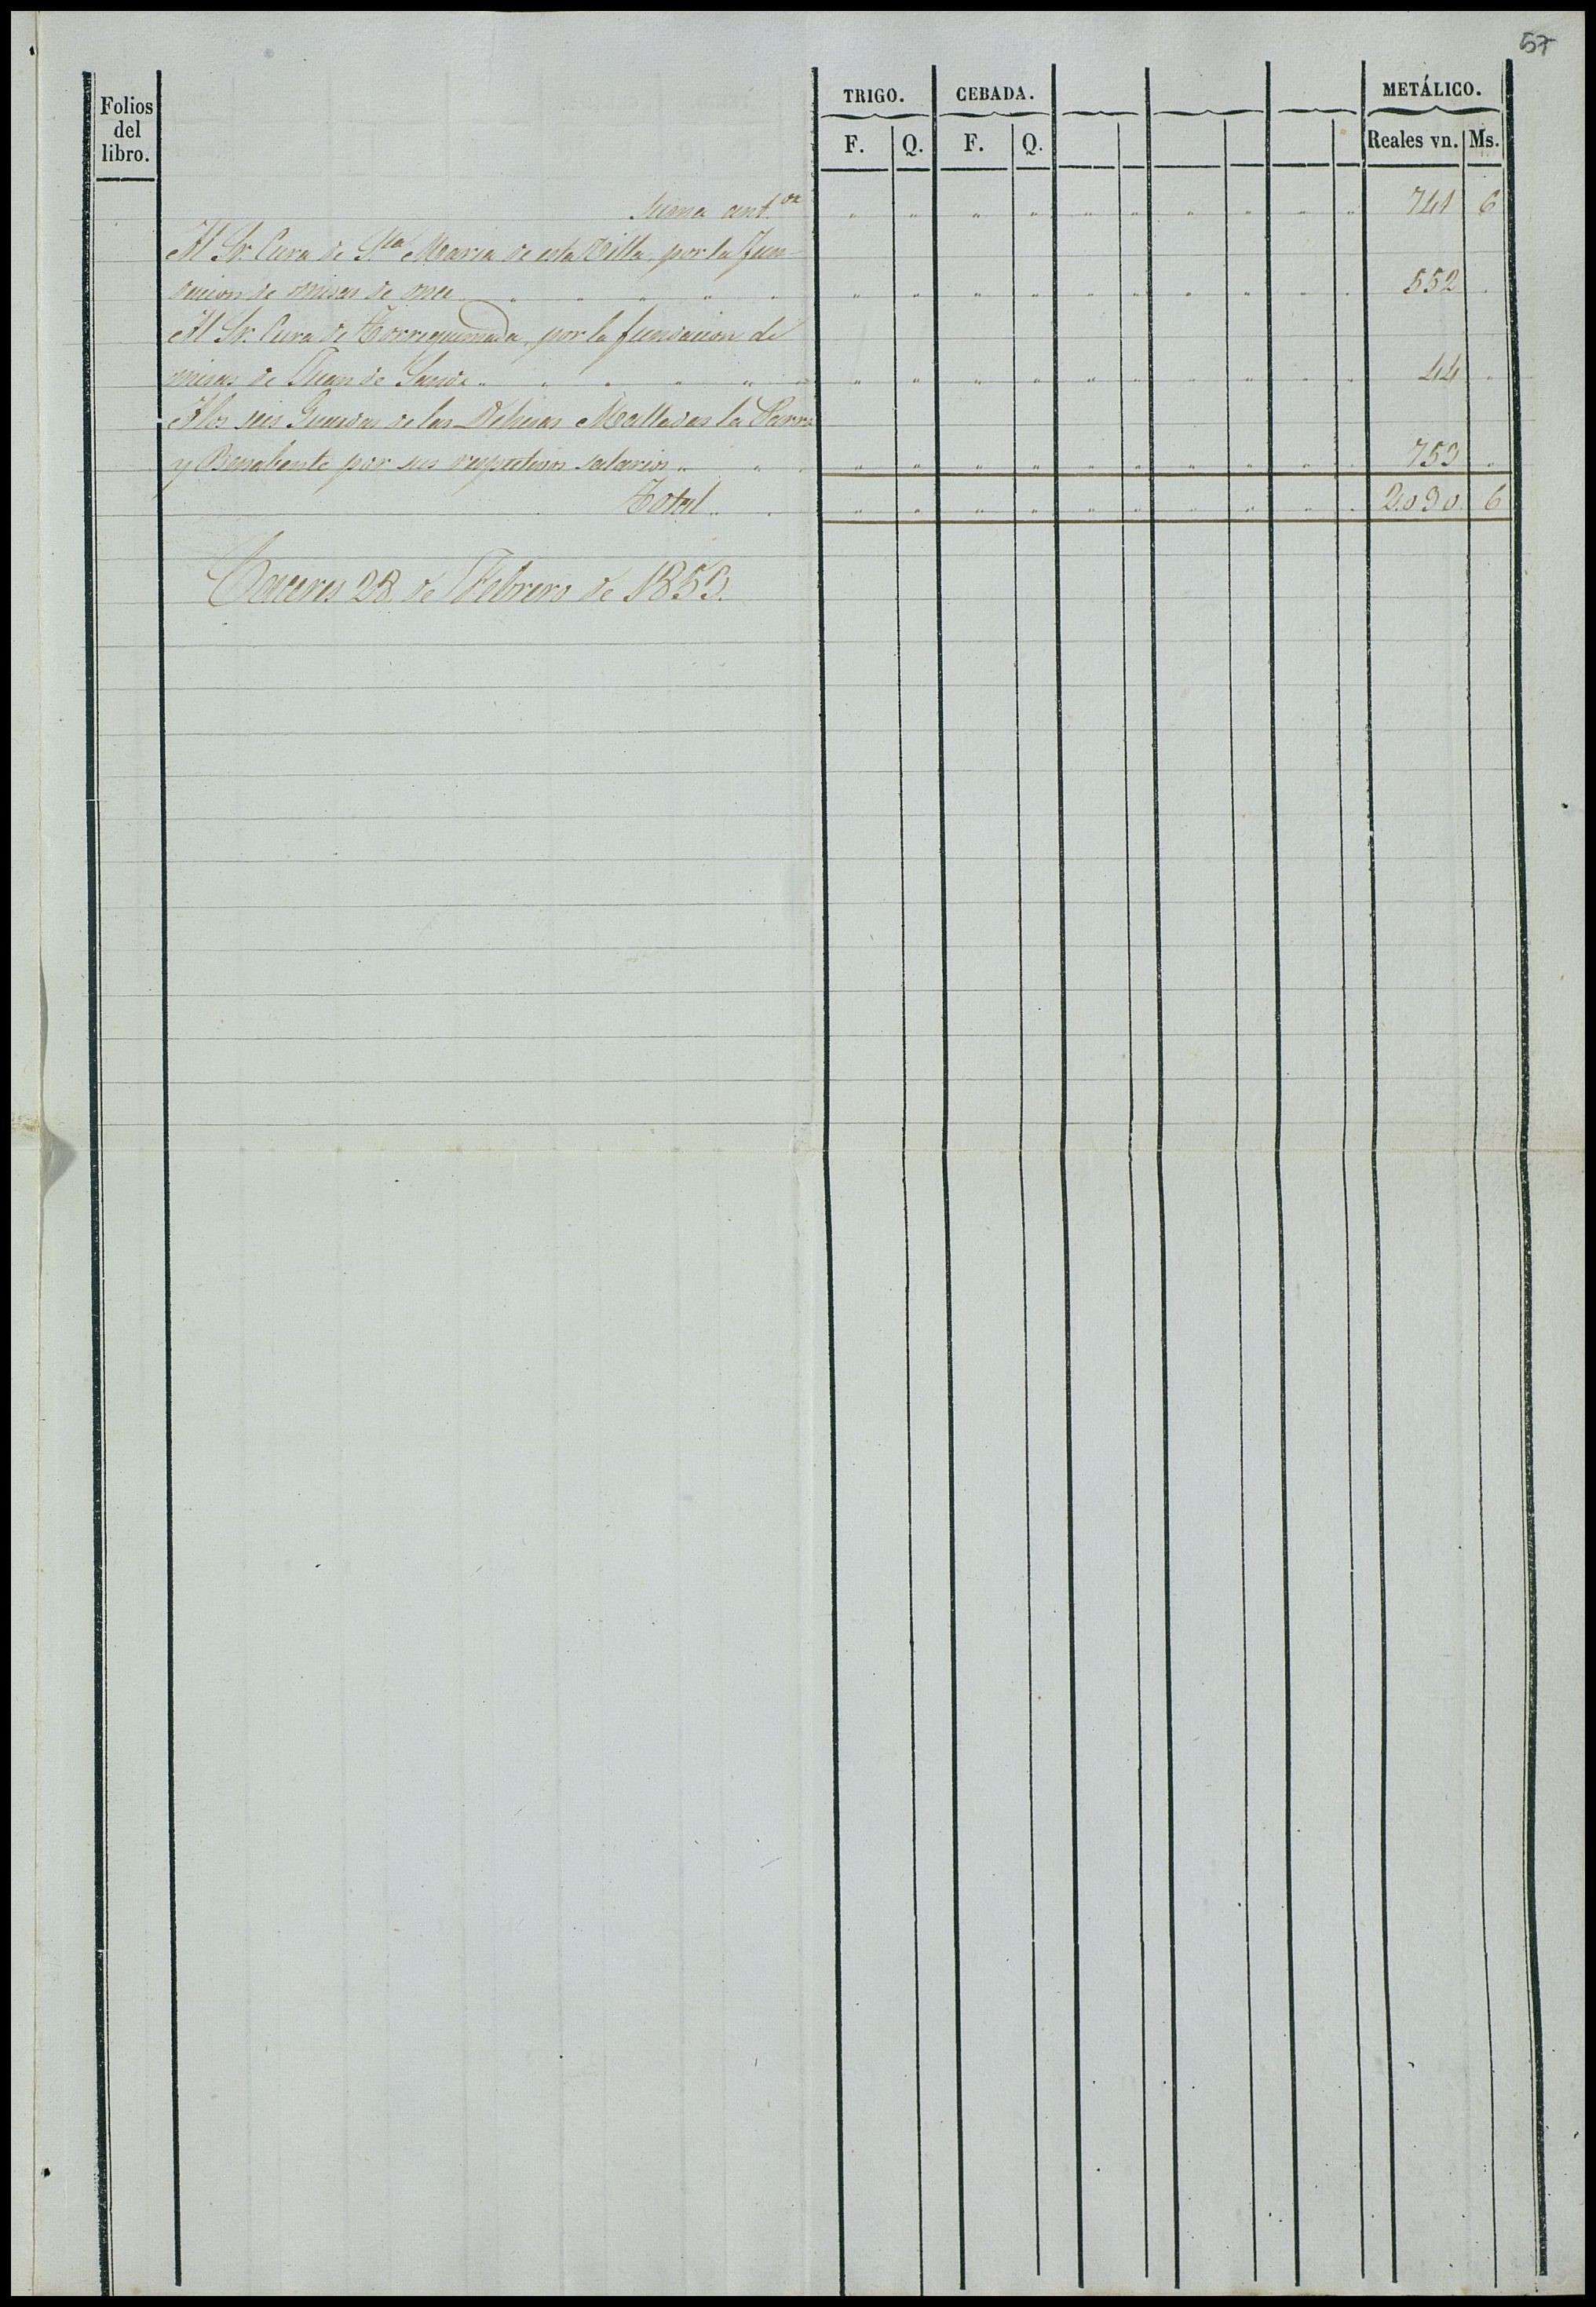 57
Folios del libro.
TRIGO. CEBADA. METÁLICO.
F. Q. F. Q. Reales vn. Ms.
Suma ant.or " " " " " " " " " " 741 6
Al Sr. Cura de S.ta Maria de esta Villa, por la fun-
dacion de misas de once " " " " " " " " " " 552 "
Al Sr. Cura de Torrequemada, por la fundacion de
misas de Juan de Sande " " " " " " " " " " 44 "
A los seis Guardas de las Dehesas Malladas la Parra
y Benabente por sus respectivos salarios " " " " " " " " " " 753 "
Total " " " " " " " " " " 2.090 6
Caceres 28 de Febrero de 1853.